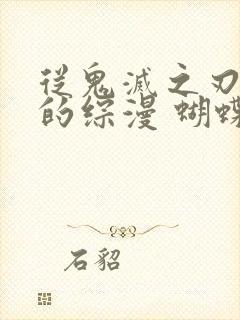 從鬼滅之刃
的综漫 蝴蝶
石貂